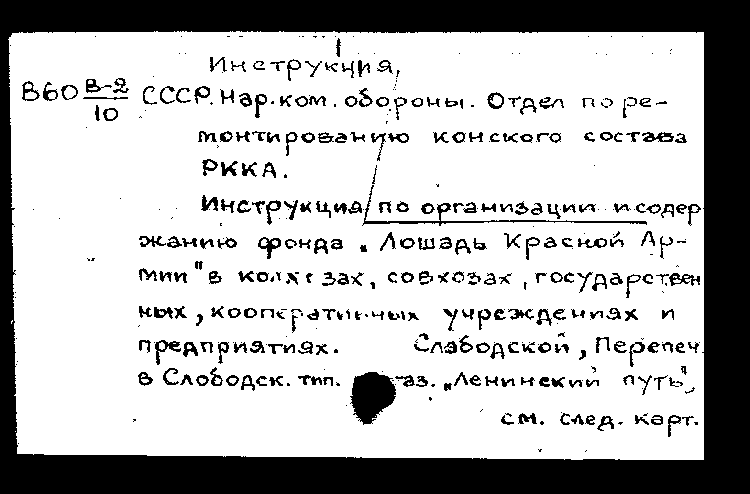 Инструкция,
В60 В-2/10 СССР. Нар.ком. обороны. Отдел по ре-
монтированию конского состава
РККА.
Инструкция по организации и содер
жанию фонда „Лошадь Красной Ар-
мии" в колхозах, совхозах, государствен
ных, кооперативных учреждениях и
предприятиях. Слободской, Перепеч.
в Слободск. тип. газ. „Ленинский путь",
см. след. карт.